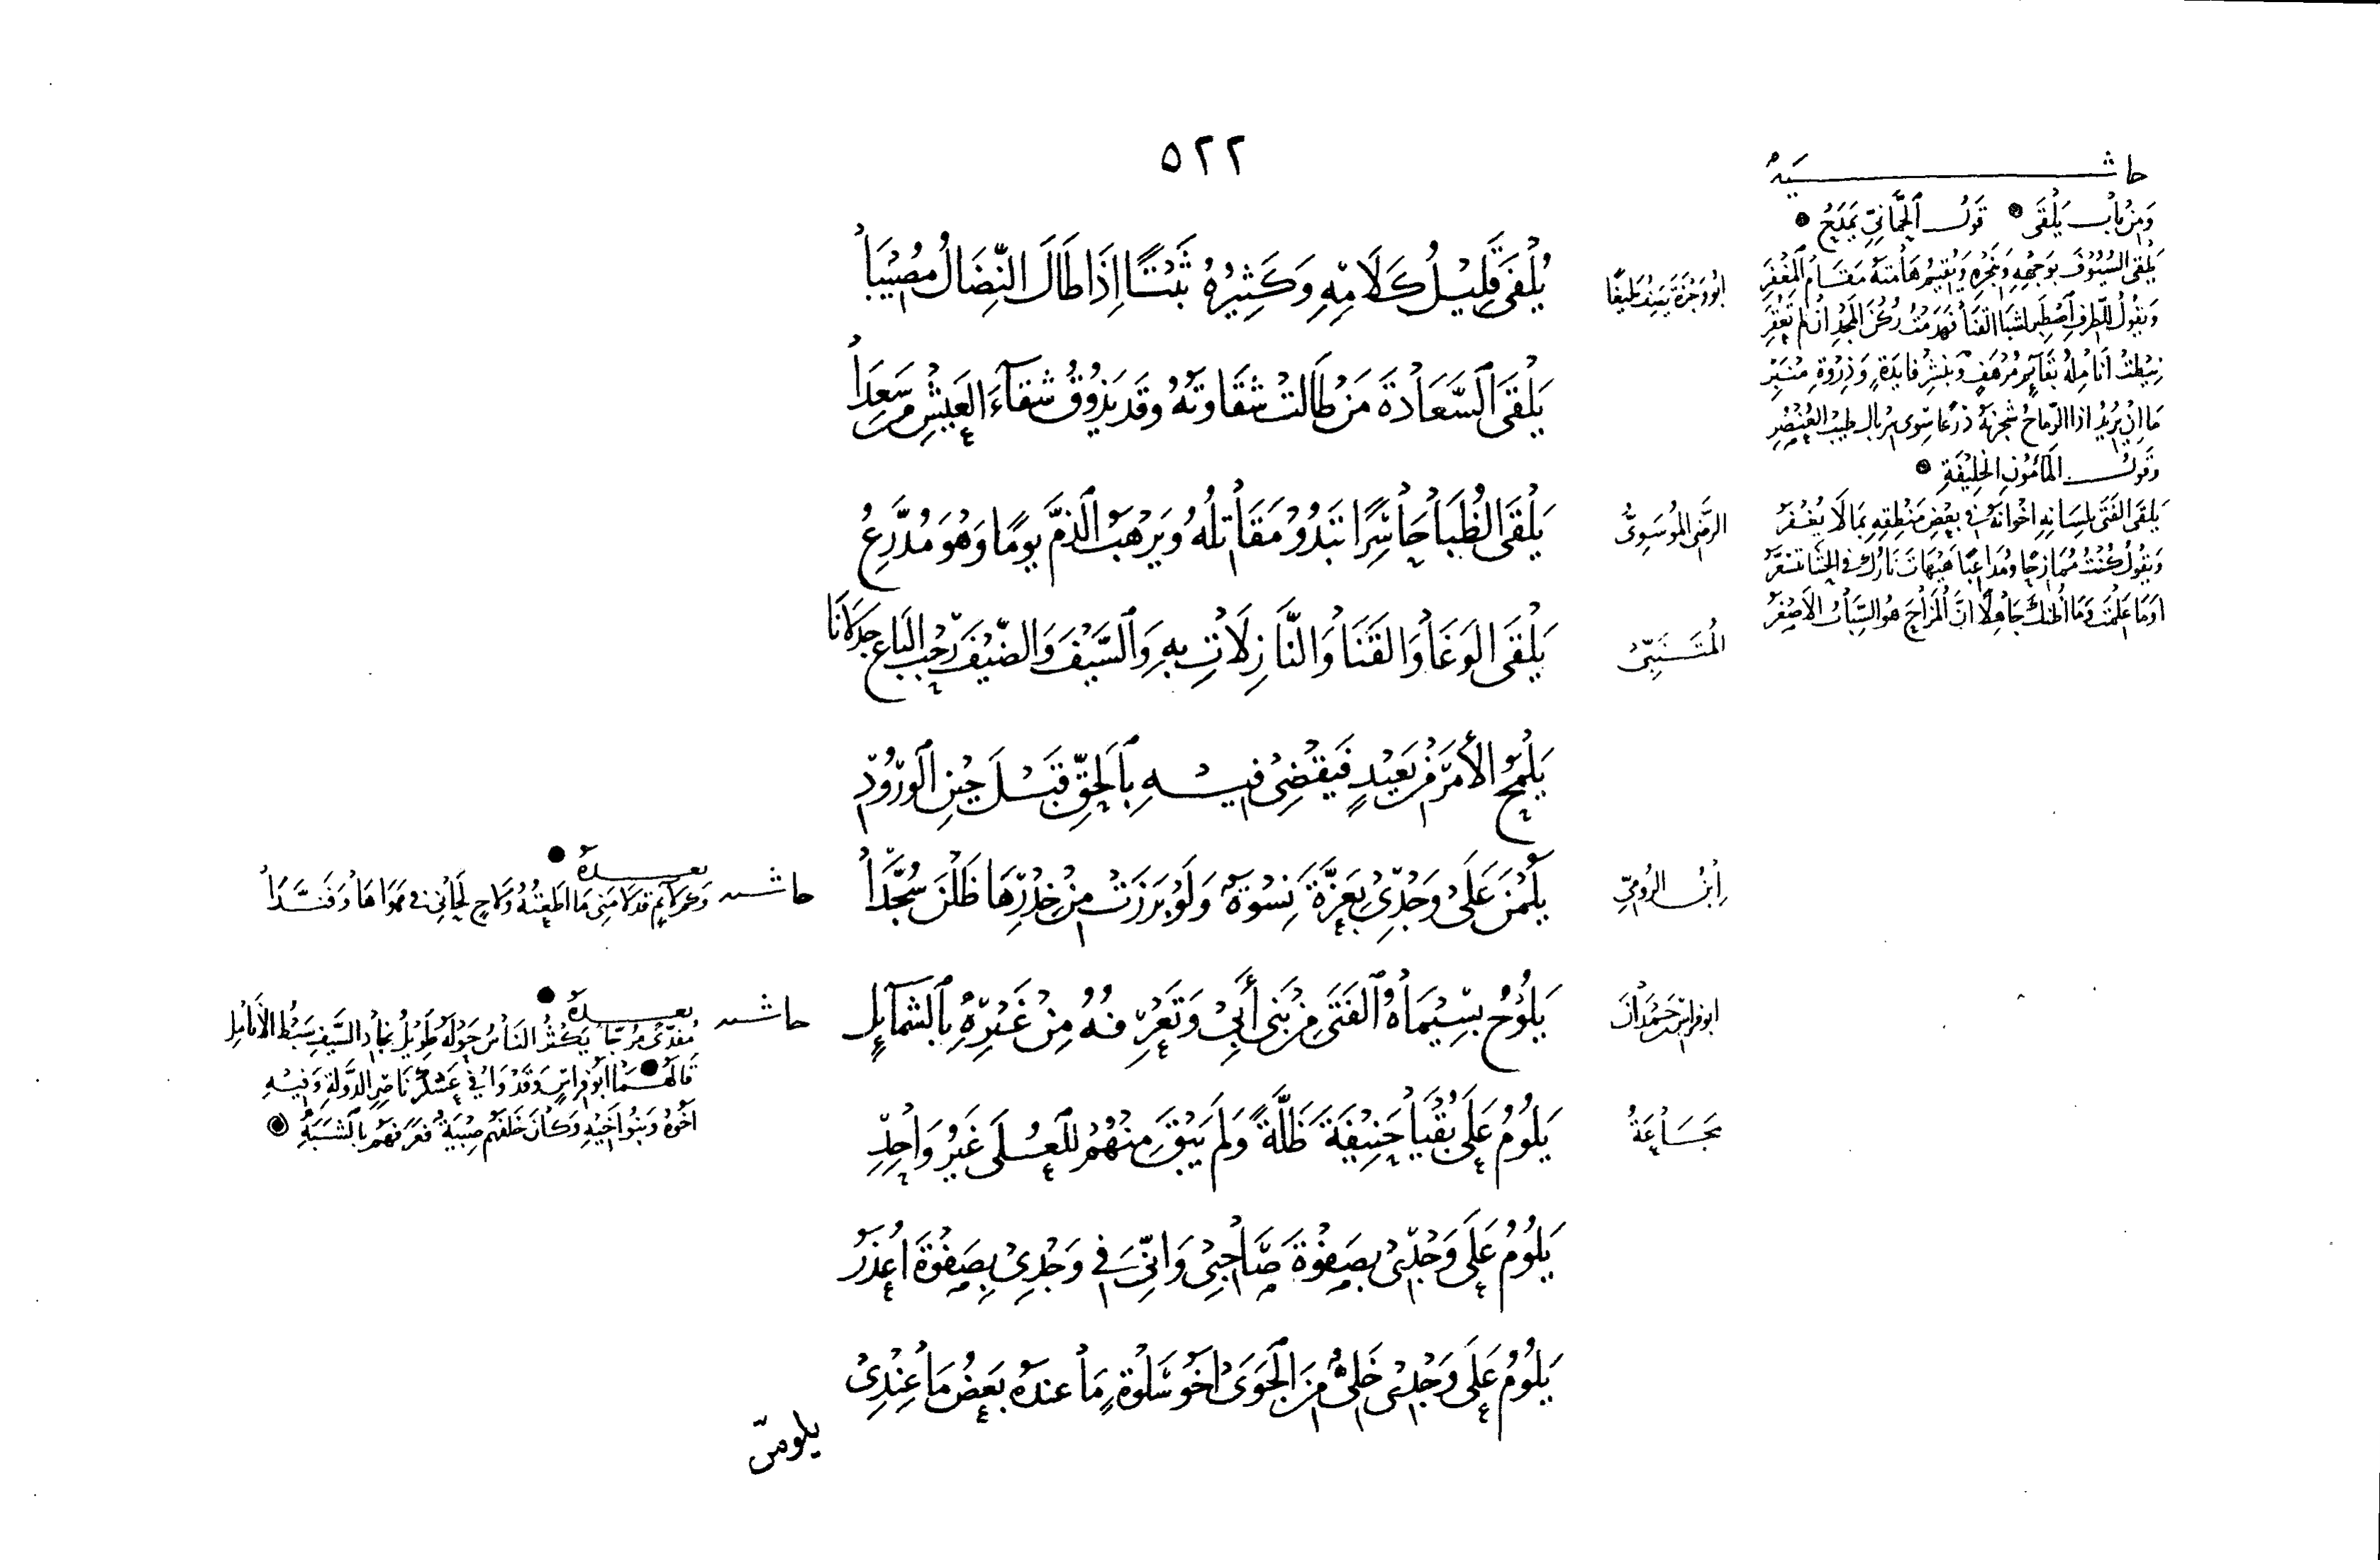 ٥٢٢
حاشية
وَمِنْ باب يَلْقَى • قول الحِمّانيّ يمدَحُ •
يَلقى السُّيُوفَ بوَجهِهِ وَبنَحْرِهِ وَيُقيمُ هَامتَهُ مَقَامَ المِغْفَرِ
وَيقُولُ للطَّرفِ اصْطَبِر لشَبَا القَنَا فَهَدمْتُ رُكنَ المَجْدِ ان لم تُعْقَرِ
مَا اِنْ يُرِيْدُ اذا الرّماحُ شَجَرْنَهُ دَرعًا سِوى سِربالِ طيْبِ العُنْصُرِ
وَقول المَأمُونِ الخَلِيْفَةِ •
يَلقى الفَتَى بلِسَانِهِ اخْوانَهُ في بعضِ مَنْطِقِهِ بمَا لَا يُغْفَرُ
وَيقُولُ كُنْتُ مُمَازِحًا ومُدَاعبًا هَيْهَاتَ نَارُكَ في الحَشَا تتسَعَّرُ
اوَمَا عَلِمْتَ وَمَا اظُنكَ جَاهِلًا انَّ المزَاحَ هُو السِّبابُ الاَصْغَرُ
ابُو وَجْزَةَ
يُلْفَى قَلِيْلُ كَلَامِهِ وَكَثِيْرُهُ ثَبْتًا اِذَا طَالَ النِّضَالُ مُصِيْبَا
يَلْقَى السَّعَادَةَ مَنْ طَالَتْ شقَاوتُهُ وقَد يَذُوْقُ شقآءَ العَيْشِ مَن سَعِدَا
الرّضي المُوسَوِيُّ
يَلْقَى الظُّبَا حَاسِرًا تَبْدُوْ مَقَاتلُهُ وَيَرْهَبُ الذمَّ يومًا وَهُوَ مُدَّرِعُ
المُتَنَبّيْ
يَلْقَى الوَغَا وَالقَنَا وَالنَّازِلَاتِ بِهِ وَالسَّيْفَ وَالضّيْفَ رَحْبَ البَاعِ جَذلَانَا
يَلْمَحُ الأَمْرَ مِنْ بَعِيْدٍ فَيَقْضِيْ فيْهِ بِالحَقِّ قبْلَ حِيْنِ الورُوْدِ
اِبْنُ الرُّوْمِيّ
يَلُمْنَ عَلَى وَجْدِيْ بِعَزَّةَ نِسْوَةٌ وَلَوْ بَرَزَتْ مِنْ خِدْرِهَا ظَلْنَ سُجَّدَا
حاشية بعده •
ابو فراس بن حَمْدَانَ
يَلُوْحُ بسِيْمَاهُ الفَتَى مِنْ بَنِي أَبِيْ وَتَعْرِفُهُ مِنْ غَيْرِهِ بِالشَّمآئِلِ
حاشية بعده •
مُفَدّىً مُرَجّاً يَكْثُرُ النَّاسُ حَوْلَهُ طَوِيْلُ نِجَادِ السَّيْفِ سَبْطُ الأَنَامِلِ
قَالهُمَا ابُو فِراسٍ وَقَدْ في عَسْكَرِ نَاصِرِ الدَّولَةِ وَفيْهِ
اَخُوهُ وَبَنُو اَخِيْهِ وَكَانَ خَلفَهُم صِبْيَةٌ فعَرَفَهُم بالشبَهِ
مَجَّاعَةُ
يَلُومُ عَلَى بُقْيَا حَنِيْفَةَ ظَلَّةً وَلَم يَبْقَ مِنْهُمْ لِلعُلَى غَيْرُ وَاحِدِ
يَلُوْمُ عَلَى وَجْدِيْ بصَفْوَةَ صَاحِبِيْ وَانِّيَ في وَجْدِيْ بِصَفْوَةَ اُعْذَرُ
يَلُوْمُ عَلَى وَجْدِيْ خَلِيٌّ مِنَ الجَوَى اَخُو سَلْوَةٍ مَا عندَهُ بَعضُ مَا عِنْدِيْ
يلومني